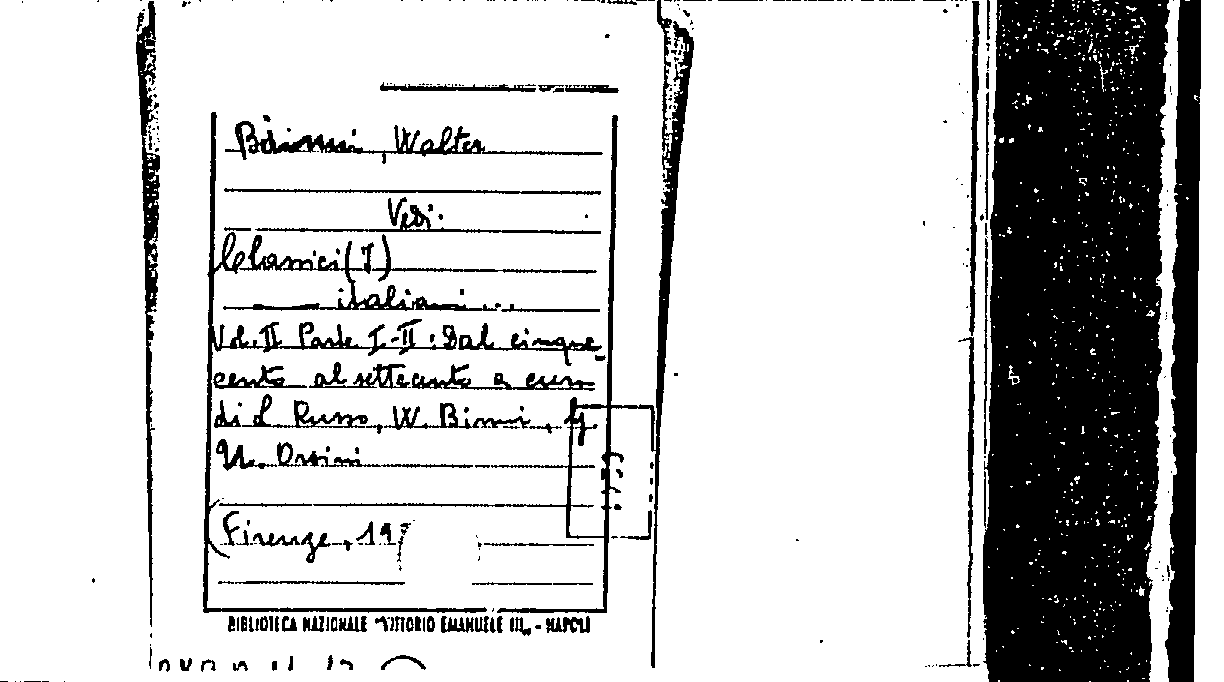 Binni, Walter
Vedi:
Classici (I)
italiani ...
Vol. II Parte I-II: Dal cinque-
cento al settecento a cura
di L. Russo, W. Binni,
Orsini
(Firenze, 19
BIBLIOTECA NAZIONALE "VITTORIO EMANUELE III" - NAPOLI